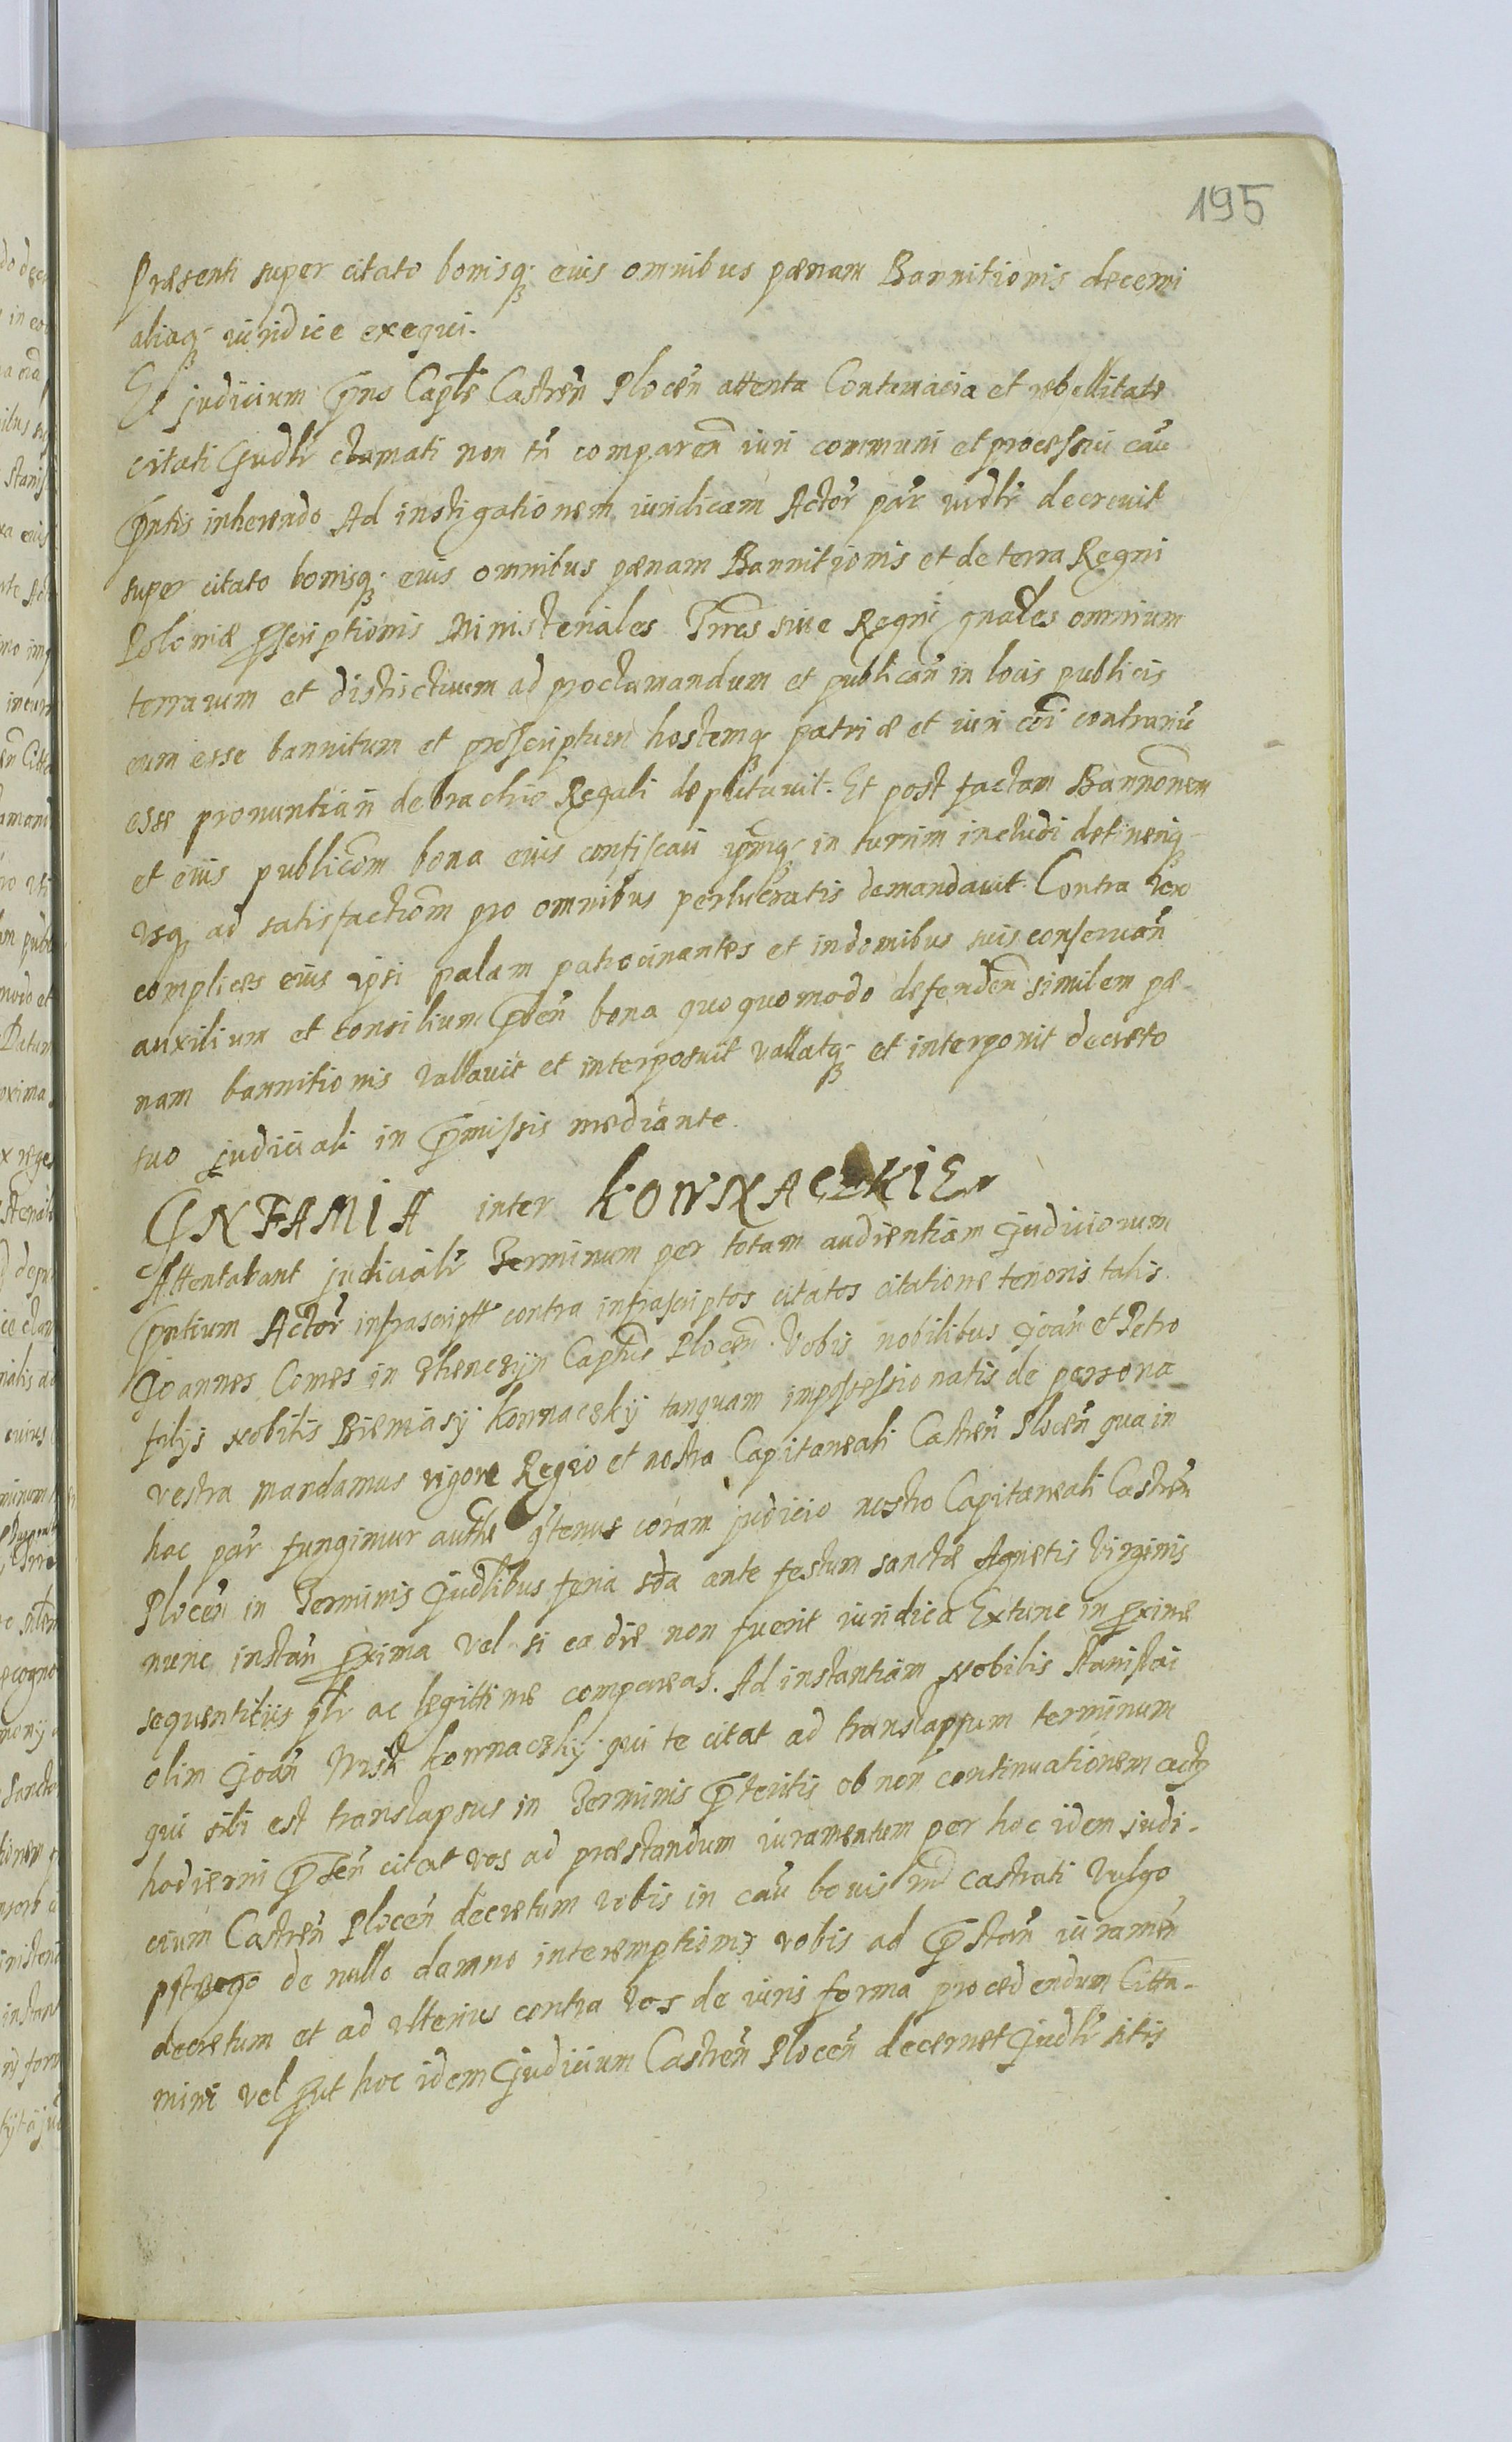 195
Præsenti super citato bonisq; eius omnibus pœnam Bannitionis decerni
aliaq; iuridice exequi.
Et judicium p̄ns Capłe Castren̄ Plocen̄ attenta Contumacia et rebellitate
citati Judłr clamati non tn̄ comparen̄ iuri communi et processui cau
p̄ntis inherendo Ad instigationem iuridicam Actor̄ par̄ iudłr decrevit
super citato bonisq; eius omnibus pœnam Bannitionis et de terra Regni
Poloniæ p̄scriptionis Ministeriales Trr̄es siue Regni gnāles omnium
terrarum et districtuum ad proclamandum et publican̄ in locis publicis
eum esse bannitum et proscriptum hostemq; patriæ et iuri cōi contrariū
esse pronuntian̄ de brachio Regali deputavit. Et post factam Bannōnem
et eius publicōm bona eius confiscari ipm̄q; in turrim includi detineriq;
vsq; ad satisfactiōm pro omnibus perlucratis demandavit. Contra vero
complices eius ipsi palam patrocinantes et in domibus suis conservan̄
auxilium et consilium p̄ben̄ bona quoquomodo defenden̄ similem pœ
nam bannitionis vallavit et interposuit vallatq; et interponit decreto
suo judiciali in p̄missis mediante.
INFAMIA inter KOWNACZKIE
Attentabant judicialr̄ Terminum per totam audientiam Judiciorum
p̄ntium Actor̄ infrascript contra infrascriptos citatos citatione tenoris talis.
Joannes Comes in Thenczyn Capłs Plocen̄. Vobis nobilibus Joan̄ et Petro
filijs Nobilis Biemiasij Kownaczkij tanquam impossessionatis de persona
vestra mandamus vigore Regio et nostra Capitaneali Castren̄ Plocen̄ qua in
hac par̄ fungimur authe q̄tenus coram judicio nostro Capitaneali Castren̄
Plocen̄ in Terminis Judłibus feria sdā ante festum sanctæ Agnetis Virginis
nunc instan̄ p̄xima Vel si ea die non fuerit iuridica Extunc in p̄xime
sequentibus płr ac legittime compareas. Ad instantiam Nobilis Stanislai
olim Joan̄ Kownaczkij qui te citat ad translapsum terminum
qui sibi est translapsus in Terminis p̄teritis ob non continuationem act
hodierni p̄sen̄ citat vos ad præstandum iuramentum per hoc idem judi-
cium Castren̄ Plocen̄ decretum vobis in cau bouis castrati Vulgo
de nullo damno interemptionis vobis ad p̄stan̄ iuramen̄
decretum et ad vlterius contra vos de iuris forma procedendum Citta-
mini vel p̄ut hoc idem Judicium Castren̄ Plocen̄ decernet Judłr sitis